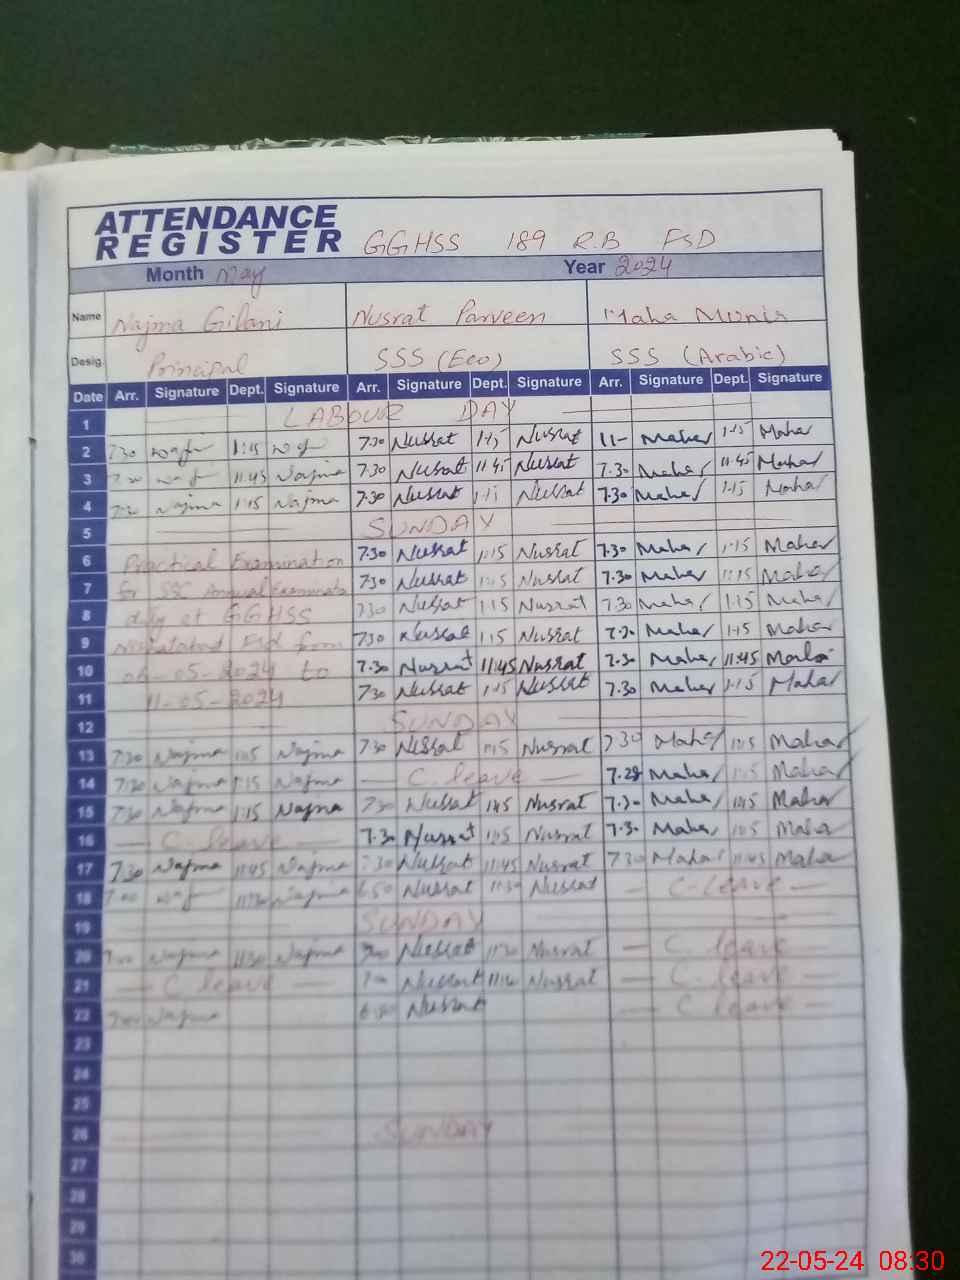 ATTENDANCE
REGISTER GGHSS 189 R.B FSD
Month May Year 2024
Name Najma Gilani Nusrat Parveen Maha Munir
Desig. Principal SSS (Eco) SSS (Arabic)
Date Arr. Signature Dept. Signature Arr. Signature Dept. Signature Arr. Signature Dept. Signature
1 LABOUR DAY
2 7.30 1:15 7.30 Nusrat 1:15 Nusrat 11- Maha 1:15 Maha
3 11:45 Najma 7.30 Nusrat 11:45 Nusrat 7.30 Maha 11:45 Maha
4 7.30 Najma 1:15 Najma 7.30 Nusrat Nusrat 7.30 Maha 1:15 Maha
5 SUNDAY
6 Practical Examination 7.30 Nusrat 1:15 Nusrat 7.30 Maha 1:15 Maha
7 for SSC Annual Examination 7.30 Nusrat 1:15 Nusrat 7.30 Maha 1:15 Maha
8 duty at GGHSS 7.30 Nusrat 1:15 Nusrat 7.30 Maha 1:15 Maha
9 Fsd from 7.30 Nusrat 1:15 Nusrat 7.30 Maha 1:15 Maha
10 06-05-2024 to 7.30 Nusrat 11:45 Nusrat 7.30 Maha 11:45 Maha
11 11-05-2024 7.30 Nusrat 1:15 Nusrat 7.30 Maha 1:15 Maha
12 SUNDAY
13 7.30 Najma Najma 7.30 Nusrat Nusrat 7.30 Maha Maha
14 7.30 Najma 1:15 Najma C.leave 7.28 Maha Maha
15 7.30 Najma 1:15 Najma 7.30 Nusrat Nusrat 7.30 Maha Maha
16 C.leave 7.30 Nusrat Nusrat 7.30 Maha Maha
17 7.30 Najma 11:45 Najma 7.30 Nusrat 11:45 Nusrat 7.30 Maha 11:45 Maha
18 Najma 6.50 Nusrat 11:30 Nusrat C.leave
19 SUNDAY
20 Najma 11:30 Najma Nusrat 11:30 Nusrat C.leave
21 C.leave Nusrat Nusrat C.leave
22 Najma Nusrat C.leave
23
24
25
26 SUNDAY
27
28
29
30
22-05-24 08:30